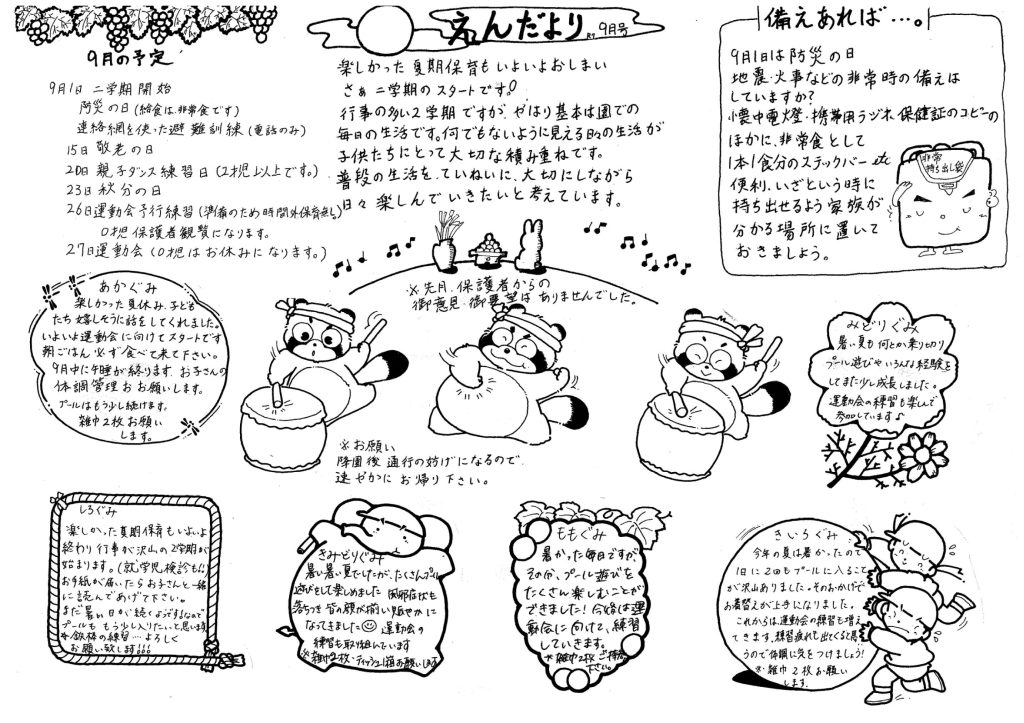 えんだより R7. 9月号
9月の予定
9月1日 二学期開始
防災の日(給食は非常食です)
連絡網を使った避難訓練(電話のみ)
15日 敬老の日
20日 親子ダンス練習日(2才児以上です。)
23日 秋分の日
26日 運動会予行練習(準備のため時間外保育無し)
0才児保護者観覧になります。
27日 運動会(0才児はお休みになります。)
楽しかった夏期保育もいよいよおしまい
さぁ二学期のスタートです!
行事の多い2学期ですが、やはり基本は園での
毎日の生活です。何でもないように見える日々の生活が
子供たちにとって大切な積み重ねです。
普段の生活を、ていねいに、大切にしながら
日々楽しんでいきたいと考えています。
備えあれば…。
9月1日は防災の日
地震・火事などの非常時の備えは
していますか?
懐中電燈・携帯用ラジオ、保健証のコピーの
ほかに、非常食として
1本1食分のスティックバーetc
便利、いざという時に
持ち出せるよう家族が
分かる場所に置いて
おきましょう。
非常
持ち出し袋
※先月、保護者からの
御意見・御要望はありませんでした。
あかぐみ
楽しかった夏休み、子ども
たち嬉しそうに話をしてくれました。
いよいよ運動会に向けてスタートです
朝ごはん必ず食べて来て下さい。
9月中に午睡が終ります。お子さんの
体調管理お願いします。
プールはもう少し続けます。
雑巾2枚お願い
します。
※お願い
降園後通行の妨げになるので
速やかにお帰り下さい。
みどりぐみ
暑い夏も何とか乗り切り
プール遊びやいろんな経験を
してまた少し成長しました。
運動会の練習も楽しんで
参加しています♪
しろぐみ
楽しかった夏期保育もいよいよ
終わり行事が沢山の2学期が
始まります。(就学児検診もね)
お手紙が届いたらお子さんと一緒
に読んであげて下さい。
まだ暑い日が続くようですなので
プールももう少し入りたいと思います
※鉄棒の練習…よろしく
お願い致します
きみどりぐみ
暑い暑い夏でしたが、たくさんプール
遊びをして楽しめました 風邪症状も
落ちつき皆の顔が揃い賑やかに
なってきました 運動会の
練習も取り組んでいます
※雑巾2枚・ティッシュ1箱お願いします
ももぐみ
暑かった毎日ですが、
その分、プール遊びを
たくさん楽しむことが
できました!今後は運
動会に向けて、練習
していきます。
※雑巾2枚ご持参
下さい。
きいろぐみ
今年の夏は暑かったので
1日に2回もプールに入ること
が沢山ありました。そのおかげで
お着替えが上手になりました。
これからは運動会の練習も増え
てきます。練習疲れも出てくると思
うので体調に気をつけましょう!
※雑巾2枚お願い
します。